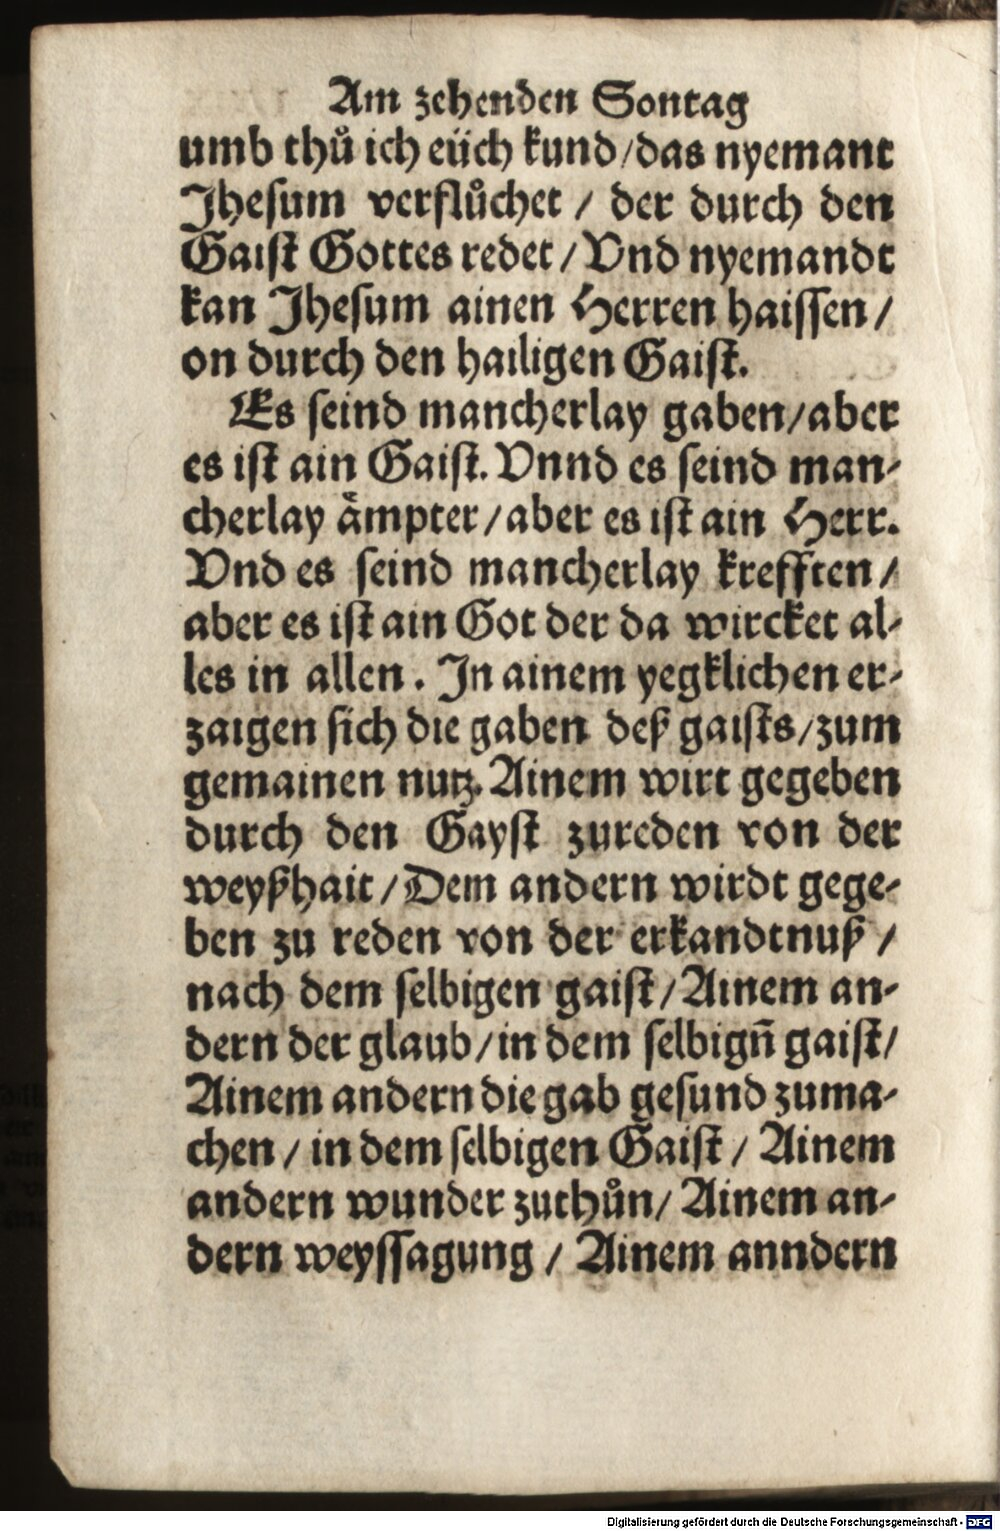 Am zehenden Sontag
umb thů ich eüch kund/das nyemant
Jhesum verflůchet / der durch den
Gaist Gottes redet / Vnd nyemandt
kan Jhesum ainen Herren haissen /
on durch den hailigen Gaist.
Es seind mancherlay gaben/aber
es ist ain Gaist. Vnnd es seind man-
cherlay aͤmpter/aber es ist ain Herr.
Vnd es seind mancherlay krefften /
aber es ist ain Got der da wircket al-
les in allen. Jn ainem yegklichen er-
zaigen sich die gaben deß gaists/zum
gemainen nutz. Ainem wirt gegeben
durch den Gayst zureden von der
weyßhait / Dem andern wirdt gege-
ben zu reden von der erkandtnuß /
nach dem selbigen gaist / Ainem an-
dern der glaub/in dem selbign̄ gaist/
Ainem andern die gab gesund zuma-
chen / in dem selbigen Gaist / Ainem
andern wunder zuthůn/ Ainem an-
dern weyssagung / Ainem anndern
Digitalisierung gefördert durch die Deutsche Forschungsgemeinschaft - DFG